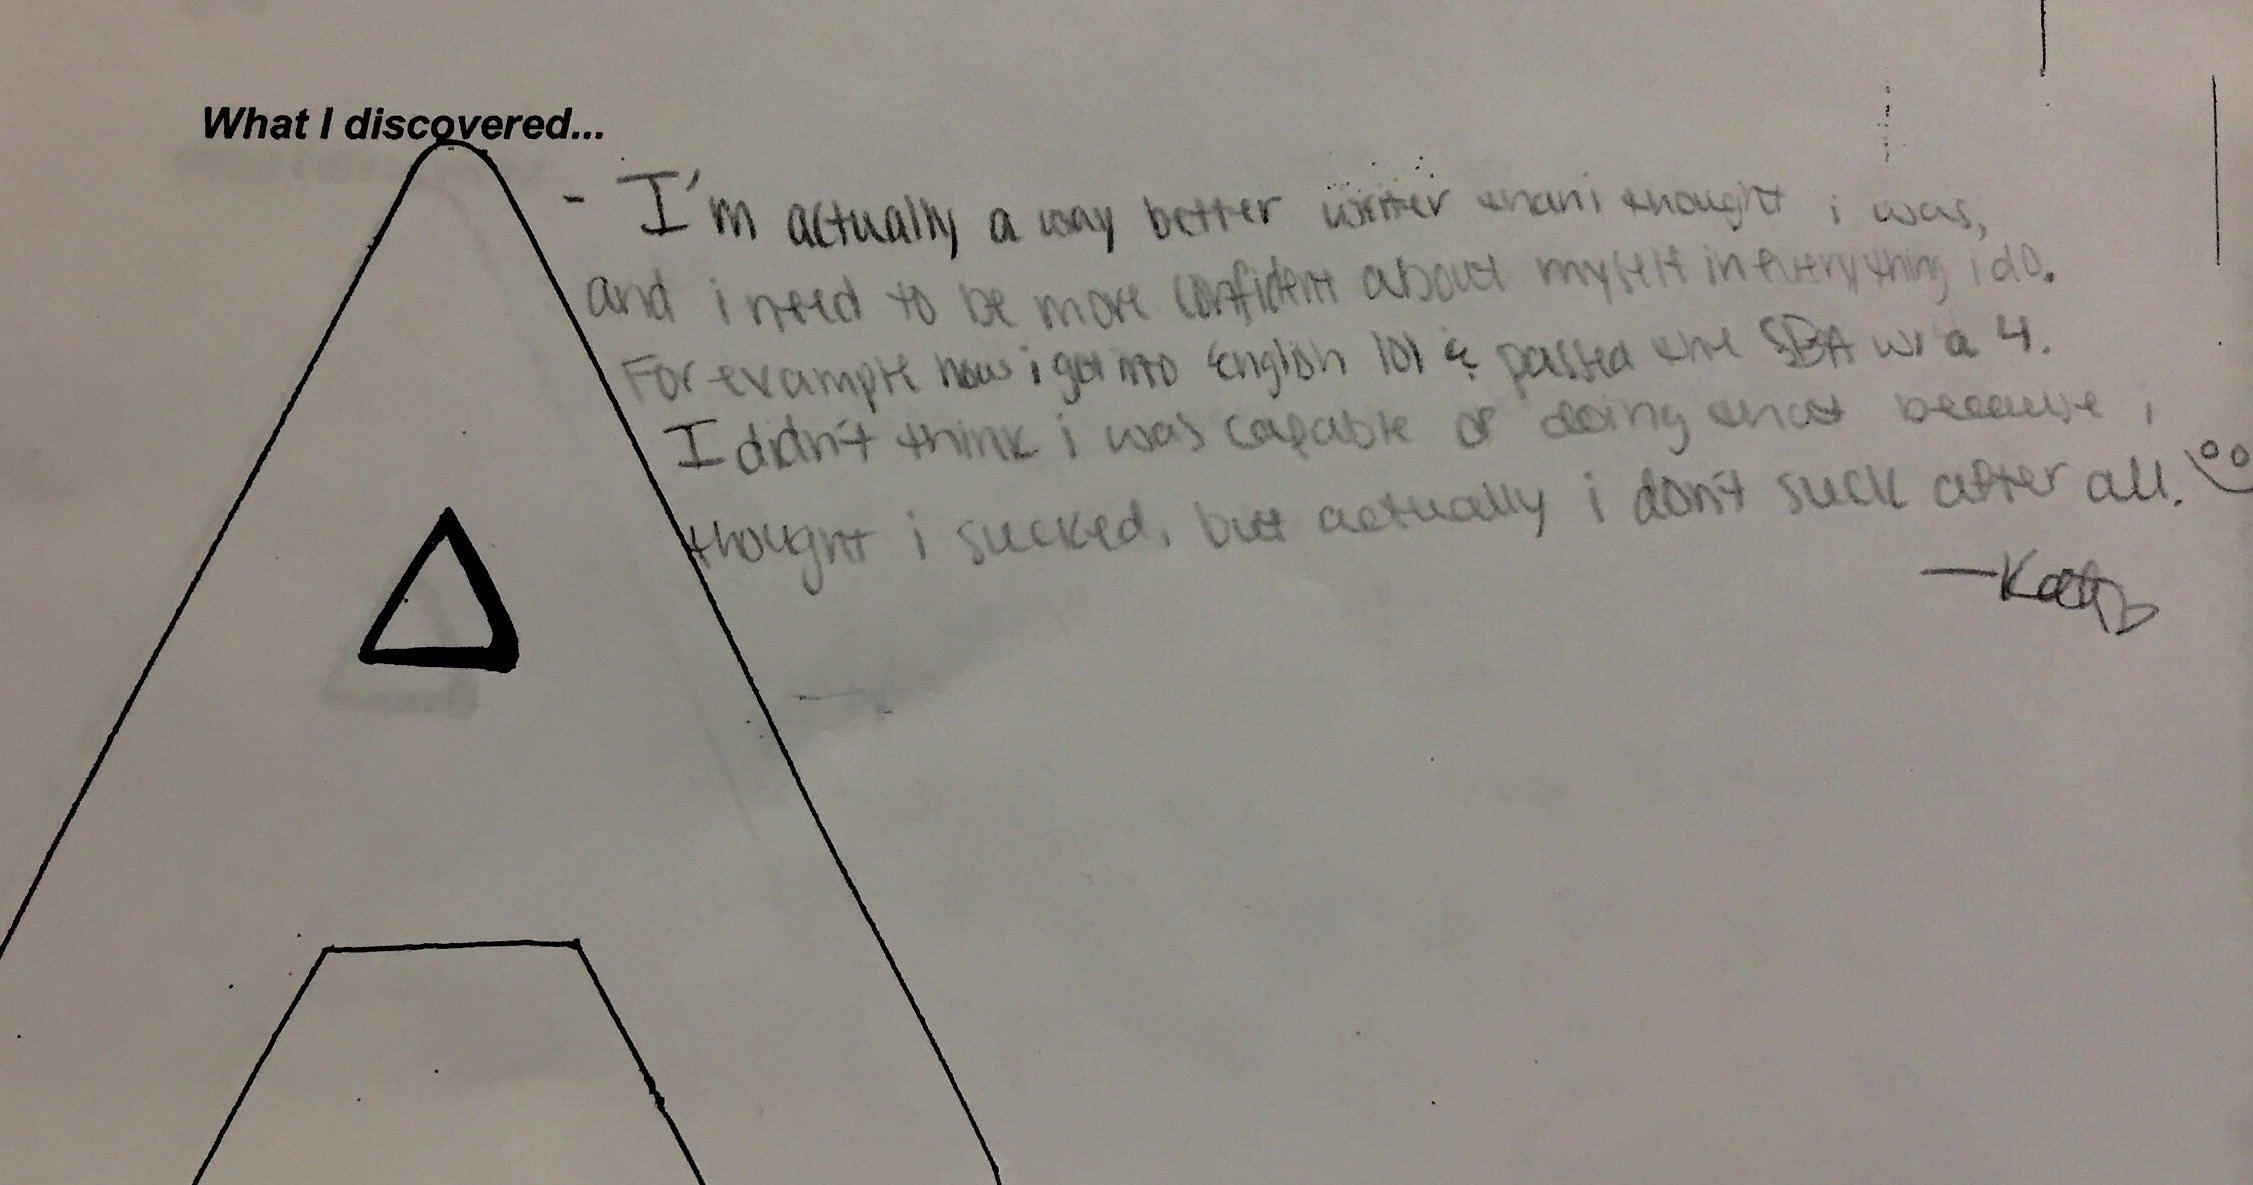 What I discovered...
- I'm actually a way better writer than i thought i was,
and i need to be more confident about myself in everything i do.
For example how i got into English 101 & passed the SBA w/ a 4.
I didn't think i was capable of doing that because i
thought i sucked, but actually i don't suck after all.